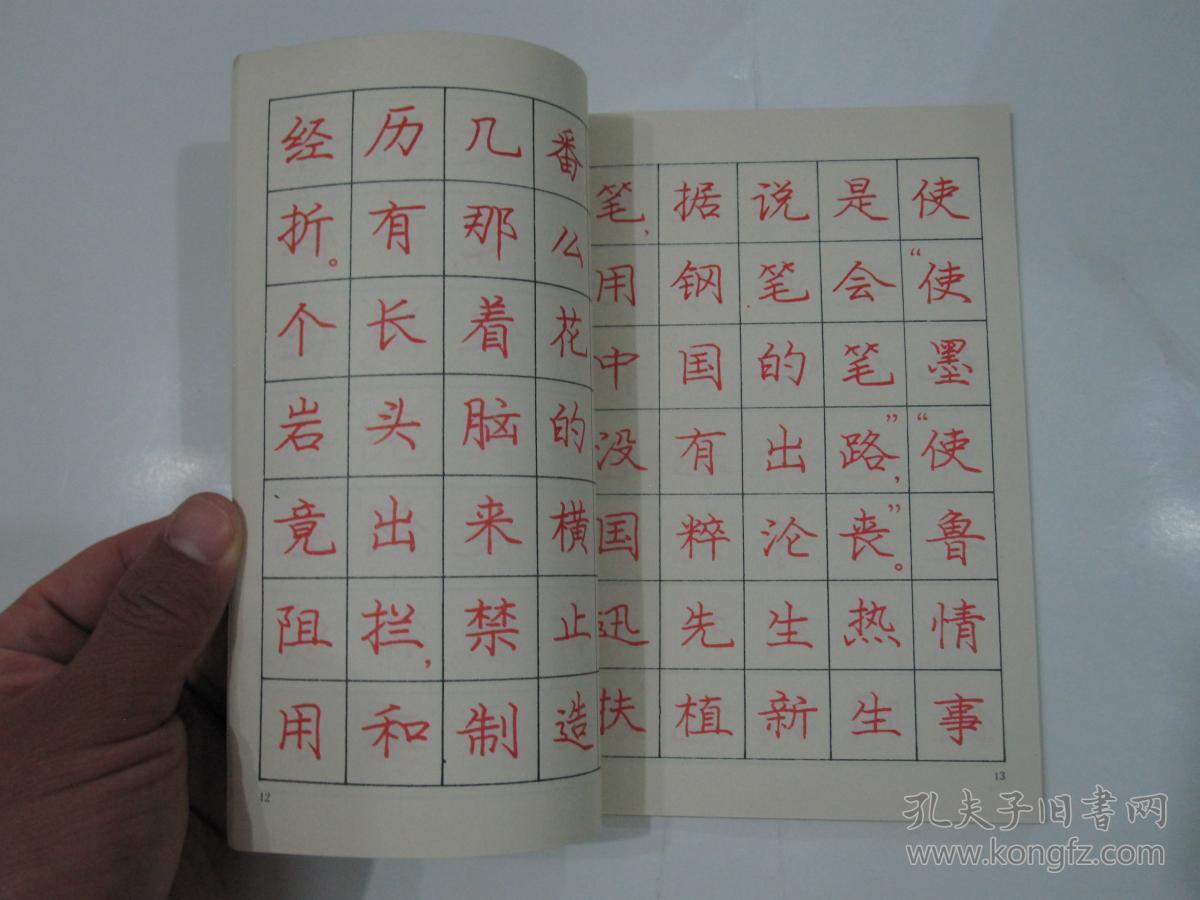 经历几番
折。有那么
个长着花
岩头脑的
竟出来横
阻拦，禁止
用和制造
12
笔，据说是使
用钢笔会“使
中国的笔墨
没有出路”，“使
国粹沦丧”。鲁
迅先生热情
扶植新生事
13
孔夫子旧书网
www.kongfz.com